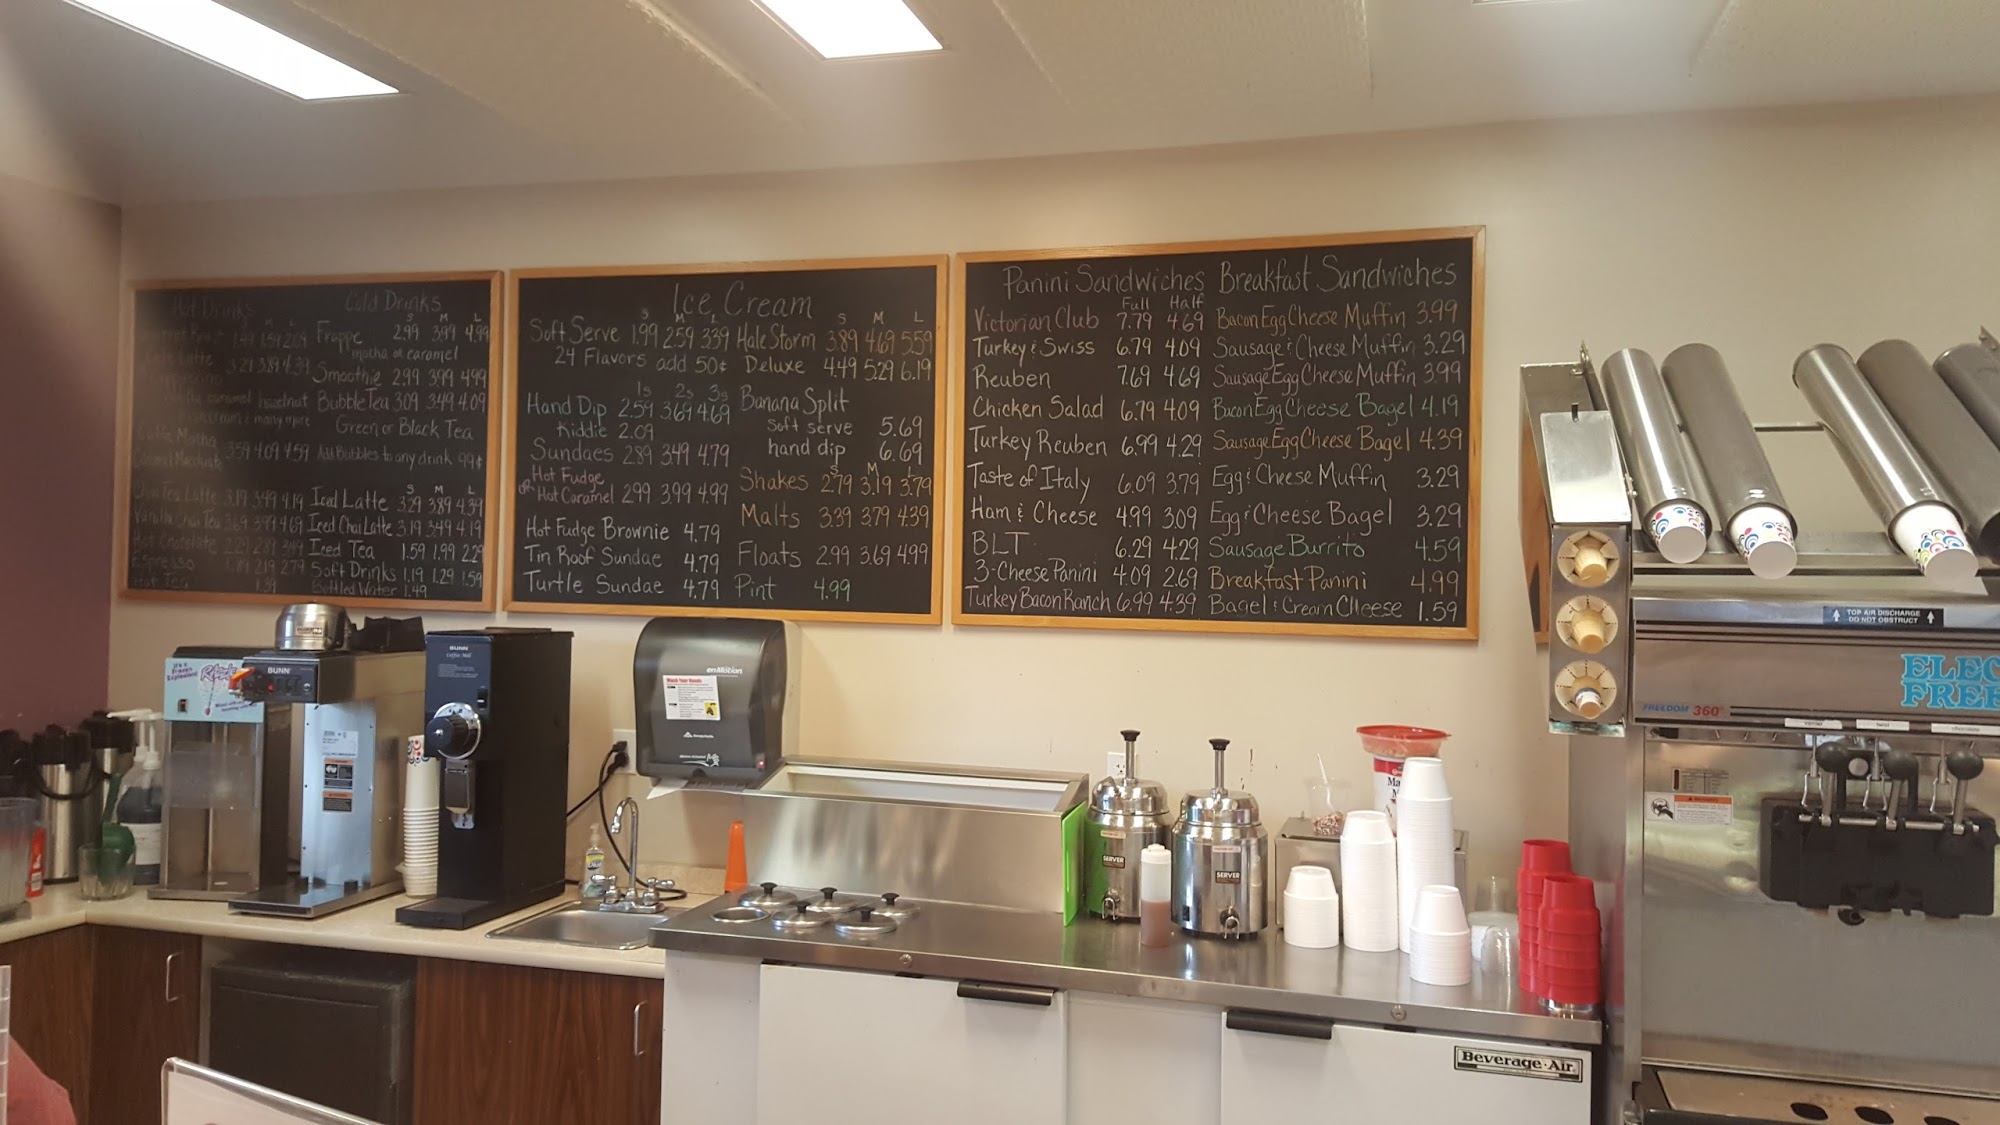 Hot Drinks
S M L
1.49 1.59 2.09
Latte 3.29 3.89 4.39
caramel hazelnut
many more
Mocha
3.59 4.09 4.59
Chai Tea Latte 3.19 3.49 4.19
Vanilla Chai Tea 3.69 3.99 4.69
Hot Chocolate 2.29 2.89 3.49
Espresso 1.89 2.19 2.79
Hot Tea 1.39
Cold Drinks
S M L
Frappe 2.99 3.99 4.99
mocha or caramel
Smoothie 2.99 3.99 4.99
Bubble Tea 3.09 3.49 4.09
Green or Black Tea
Add Bubbles to any drink 99¢
S M L
Iced Latte 3.29 3.89 4.39
Iced Chai Latte 3.19 3.49 4.19
Iced Tea 1.59 1.99 2.29
Soft Drinks 1.19 1.29 1.59
Bottled Water 1.49
Ice Cream
S M L
Soft Serve 1.99 2.59 3.39
24 Flavors add 50¢
1s 2s 3s
Hand Dip 2.59 3.69 4.69
Kiddie 2.09
Sundaes 2.89 3.49 4.79
Hot Fudge
or Hot Caramel 2.99 3.99 4.99
Hot Fudge Brownie 4.79
Tin Roof Sundae 4.79
Turtle Sundae 4.79
S M L
Hale Storm 3.89 4.69 5.59
Deluxe 4.49 5.29 6.19
Banana Split
soft serve 5.69
hand dip 6.69
S M L
Shakes 2.79 3.19 3.79
Malts 3.39 3.79 4.39
Floats 2.99 3.69 4.99
Pint 4.99
Panini Sandwiches
Full Half
Victorian Club 7.79 4.69
Turkey & Swiss 6.79 4.09
Reuben 7.69 4.69
Chicken Salad 6.79 4.09
Turkey Reuben 6.99 4.29
Taste of Italy 6.09 3.79
Ham & Cheese 4.99 3.09
BLT 6.29 4.29
3-Cheese Panini 4.09 2.69
Turkey Bacon Ranch 6.99 4.39
Breakfast Sandwiches
Bacon Egg Cheese Muffin 3.99
Sausage & Cheese Muffin 3.29
Sausage Egg Cheese Muffin 3.99
Bacon Egg Cheese Bagel 4.19
Sausage Egg Cheese Bagel 4.39
Egg & Cheese Muffin 3.29
Egg & Cheese Bagel 3.29
Sausage Burrito 4.59
Breakfast Panini 4.99
Bagel & Cream Cheese 1.59
TOP AIR DISCHARGE
DO NOT OBSTRUCT
ELEC
FREE
FREEDOM 360°
twist
chocolate
BUNN
BUNN
Coffee Mill
enMotion
Wash Your Hands
SERVER
SERVER
Beverage-Air